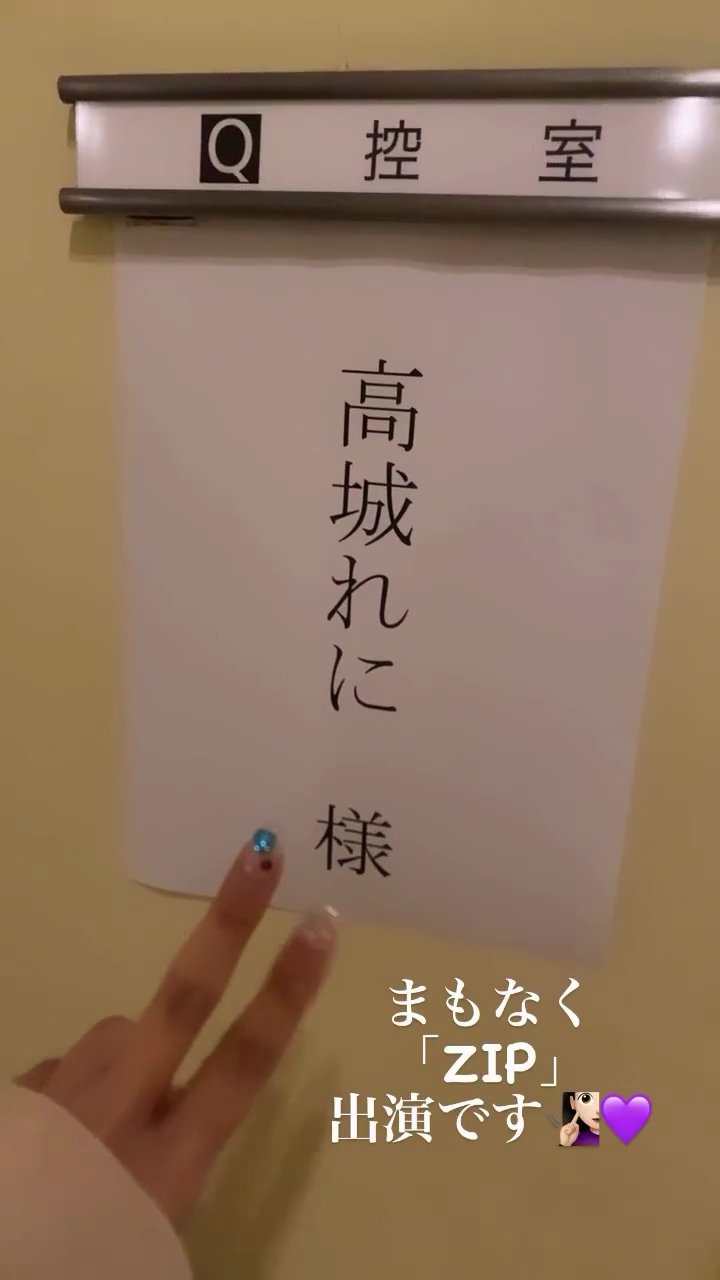 Q 控 室
高城れに 様
まもなく
「ZIP」
出演です🧏🏻‍♀️💜